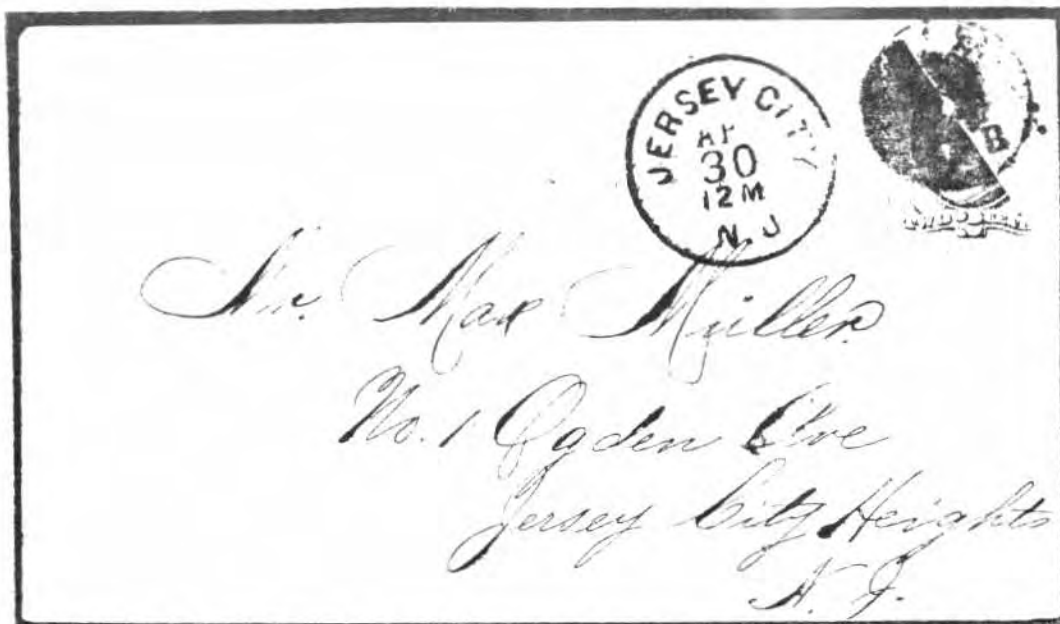 JERSEY CITY
AP
30
12 M
N.J
B
TWO CENTS
Mr. Max Müller
No. 1 Ogden Ave
Jersey City Heights
N. J.